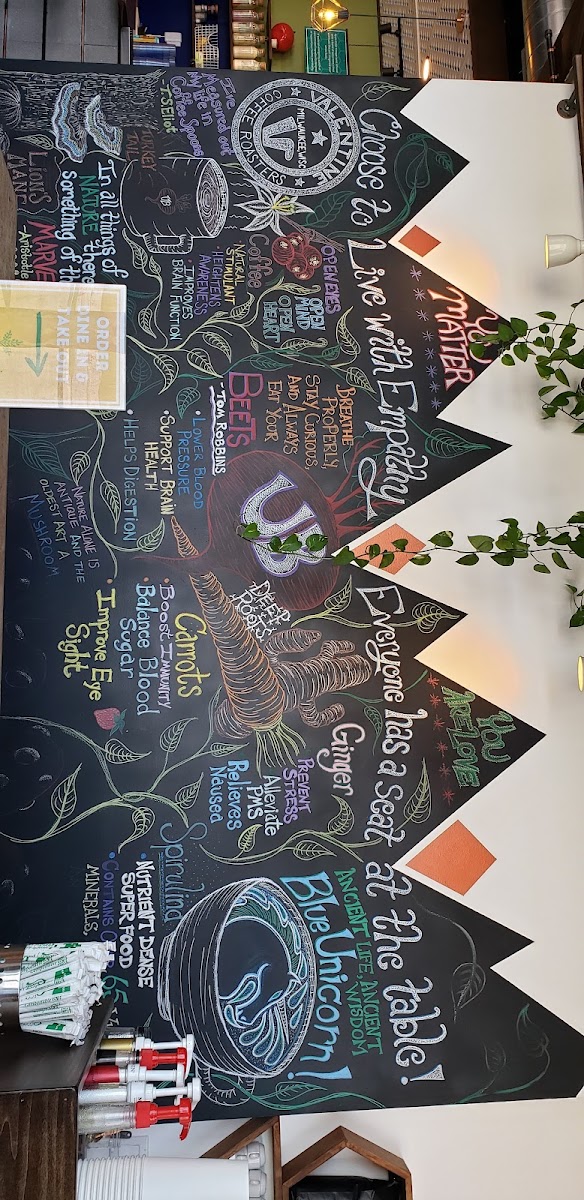 Choose to Live with Empathy
Everyone has a seat at the table!
MATTER
YOU
ARE LOVE
VALENTINE
COFFEE ROASTERS
MILWAUKEE, WISC
I've
Measured out
My life in
Coffee Spoons
J.S. Eliot
TURKEY
TAIL
LIONS
MANE
In all things of
NATURE there
Something of th
MARVE
-Aristotle
Coffee
NATURAL
STIMULANT
• HEIGHTENS
AWARENESS
• IMPROVES
BRAIN FUNCTION
OPEN EYES
OPEN
MIND
OPEN
HEART
BREATHE
PROPERLY
STAY CURIOUS
AND ALWAYS
EAT YOUR
BEETS
-TOM ROBBINS
• LOWER BLOOD
PRESSURE
• SUPPORT BRAIN
HEALTH
• HELPS DIGESTION
UB
NATURE ALONE IS
ANTIQUE AND THE
OLDEST ART A
MUSHROOM
DEEP
ROOTS
Carrots
• Boost IMMUNITY
• Balance Blood
Sugar
• Improve Eye
Sight
Ginger
PREVENT
STRESS
Alleviate
PMS
Relieves
Naused
Spirulina
• NUTRIENT DENSE
SUPER FOOD
• CONTAINS
65
MINERALS,
ANCIENT LIFE, ANCIENT
WISDOM
Blue Unicorn!
ORDER
DINE IN &
TAKE OUT